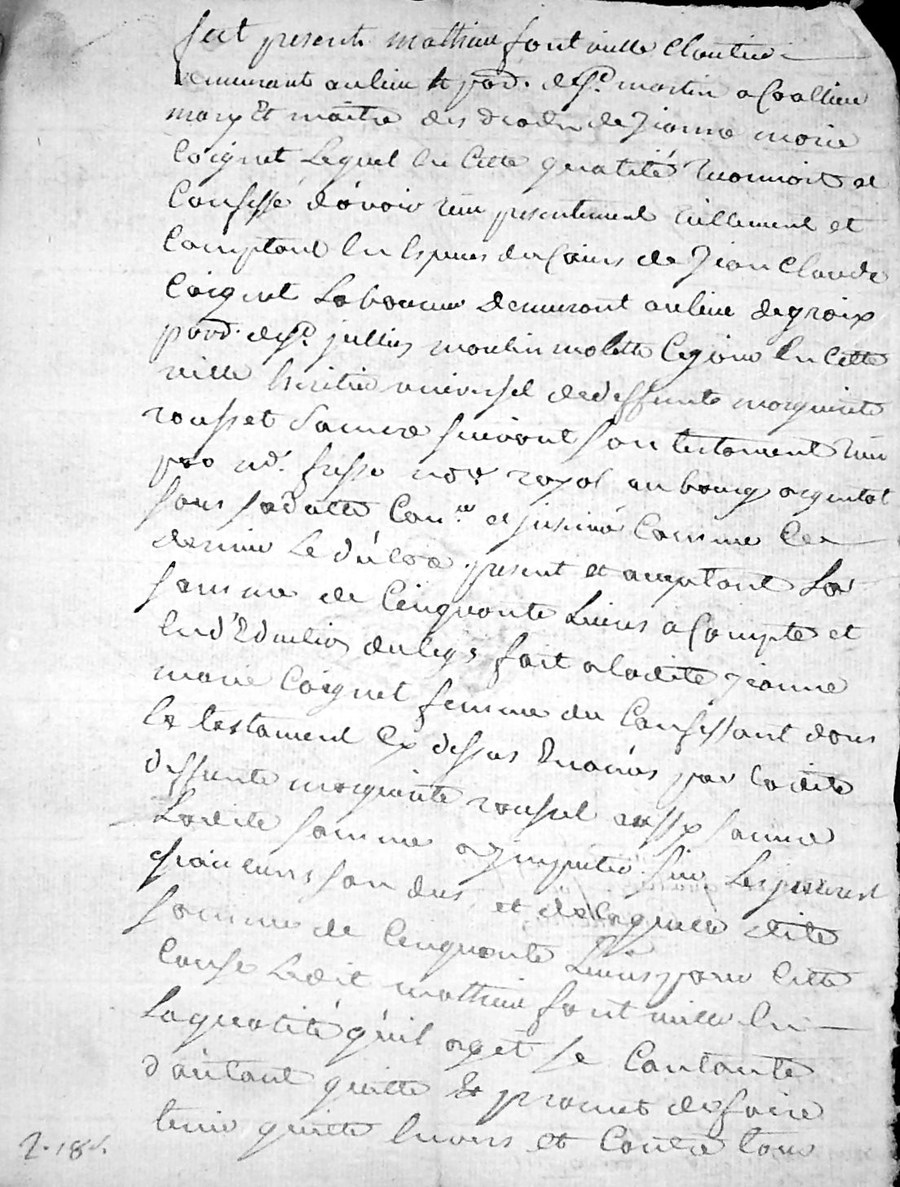 fut présent mathieu fontvielle Cloutier
demeurant au lieu et par. de St. martin a Coallieu
mary et maitre des droits de Jeanne marie
Coignet Lequel en cette qualité reconnoit et
Confessé d'avoir reçu presentement réellement et
Comptant en Espèces du Cours de Jean Claude
Coignet Laboureur demeurant au lieu de groix
parr. de St. jullien moulin molette Ce jour en Cette
ville heritier universel de deffunte marguerite
rousset sa mere suivant son testament reçu
par me. frisse nore. royal au bourg argental
sous sa datte Con.lle et insinué Comme Ce
dernier Le déclare present et acceptant La
somme de Cinquante Livres a Compte et
en déduction du legs fait a ladite Jeanne
marie Coignet femme du Confessant dans
Le testament Cy dessus énoncé par ladite
deffunte marguerite rousset sa mere
Ladite somme a imputer sur Les
son dus, et de laquelle dite
somme de Cinquante Livres pour Cette
Cause Ledit mathieu fontvielle en
La qualité qu'il agit se Contante
d'autant quitte et promet de faire
tenir quitte Envers et Contre tous
2.186.